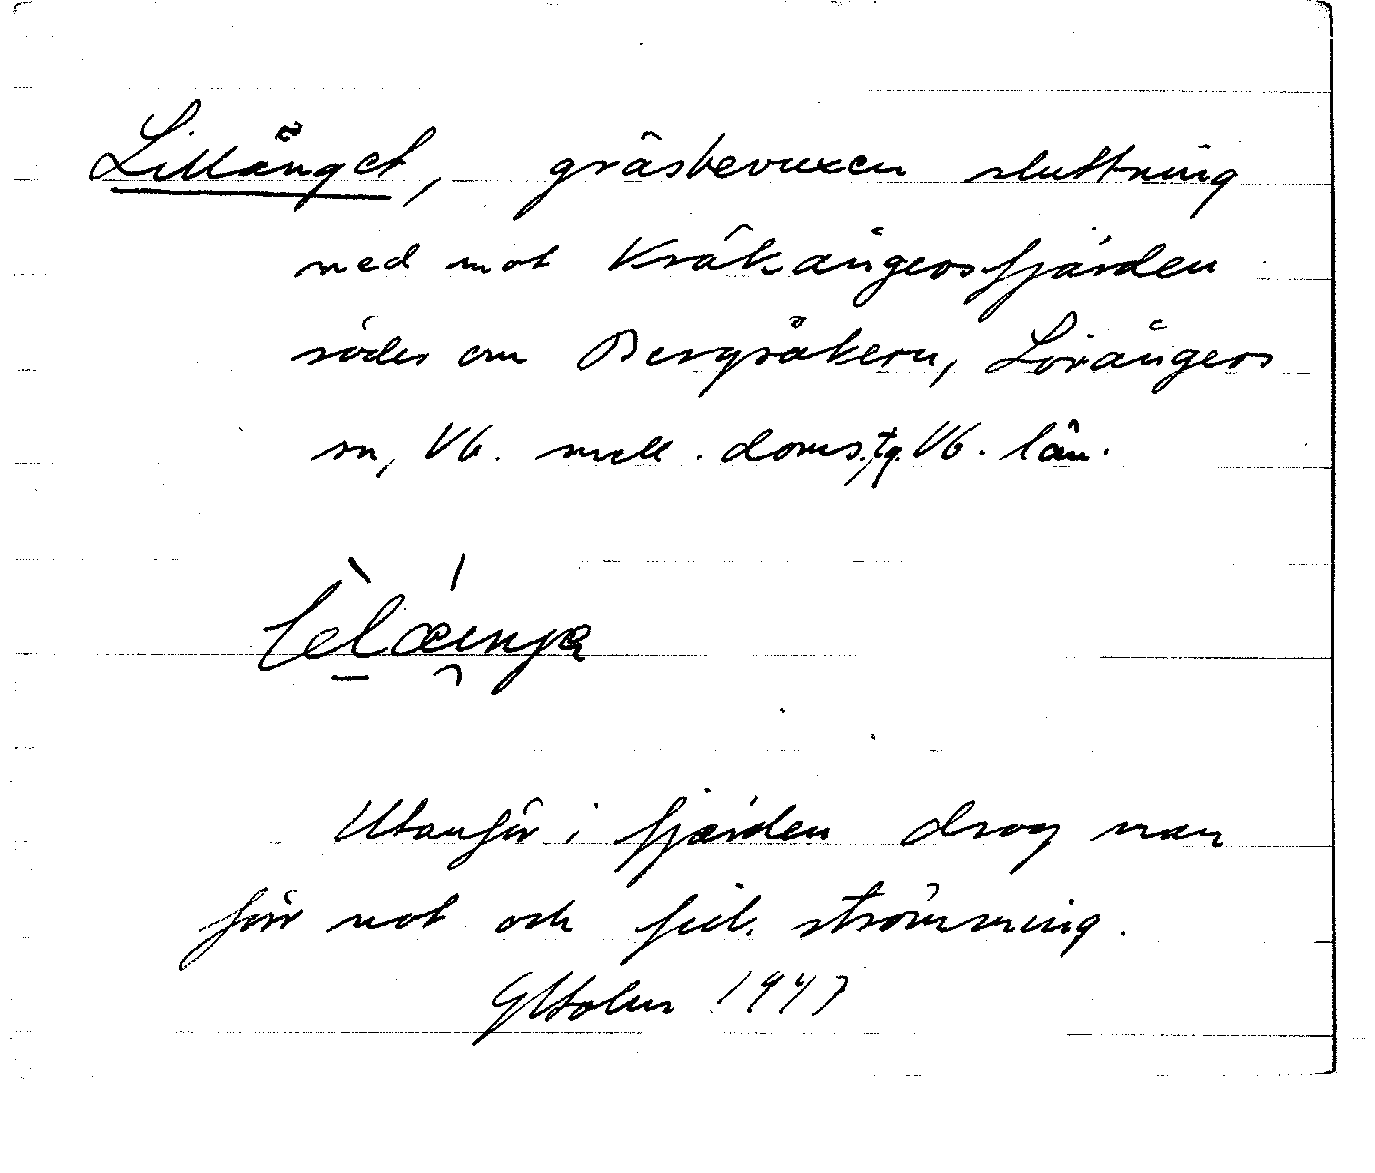 Lillänget, gräsbevuxen sluttning
ned mot Kråkångersfjärden
söder om Bergsåkern, Lövångers
sn, Vb. mell. doms.tg. Vb. län.
Utanför i fjärden drog man
förr not och fick strömming.
1947